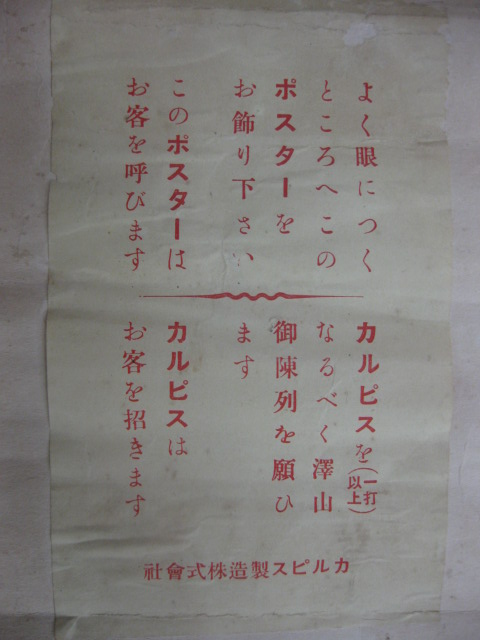 よく眼につく
ところへこの
ポスターを
お飾り下さい
このポスターは
お客を呼びます
カルピスを（一打以上）
なるべく澤山
御陳列を願ひ
ます
カルピスは
お客を招きます
社會式株造製スピルカ